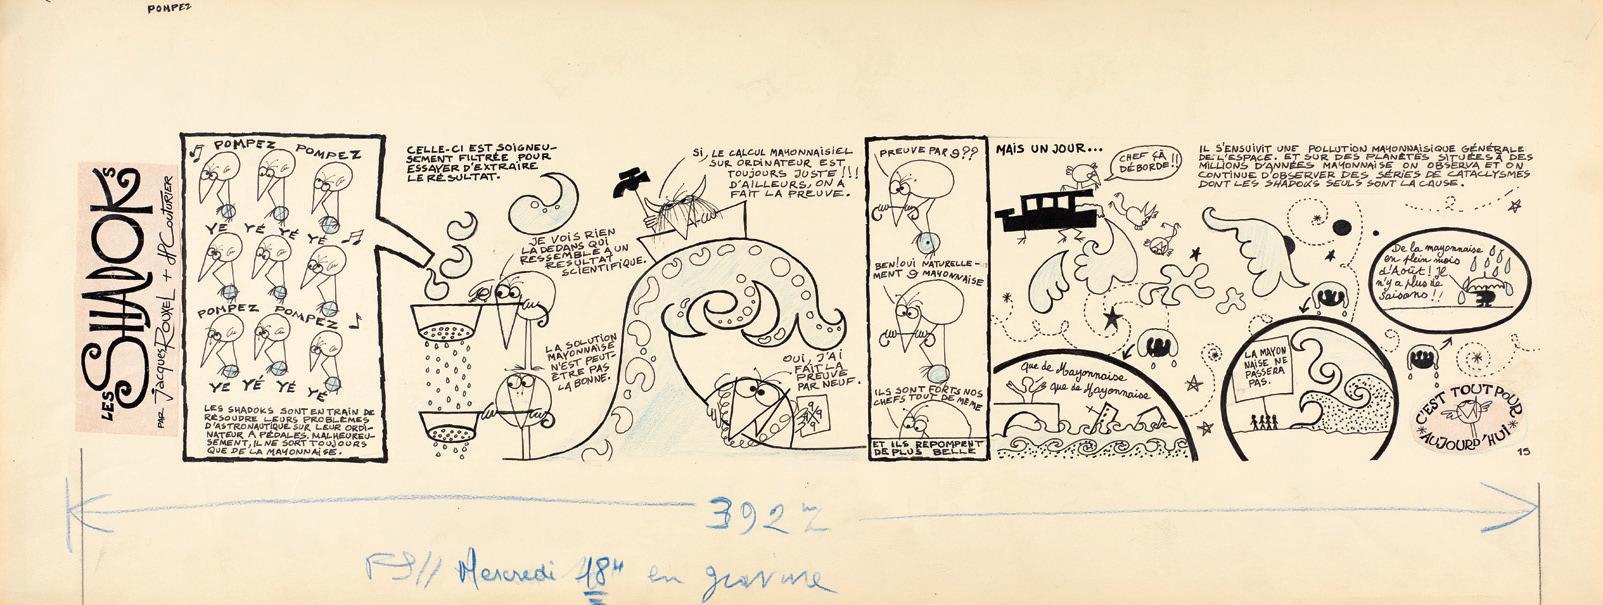 POMPEZ
LES SHADOKS
PAR Jacques ROUXEL + JP COUTURIER
POMPEZ POMPEZ
YÉ YÉ YÉ YÉ
POMPEZ POMPEZ
YÉ YÉ YÉ YÉ
LES SHADOKS SONT EN TRAIN DE
RÉSOUDRE LEURS PROBLÈMES
D'ASTRONAUTIQUE SUR LEUR ORDI-
NATEUR À PÉDALES. MALHEUREU-
SEMENT, IL NE SORT TOUJOURS
QUE DE LA MAYONNAISE.
CELLE-CI EST SOIGNEU-
SEMENT FILTRÉE POUR
ESSAYER D'EXTRAIRE
LE RÉSULTAT.
JE VOIS RIEN
LÀ DEDANS QUI
RESSEMBLE À UN
RÉSULTAT
SCIENTIFIQUE.
LA SOLUTION
MAYONNAISE
N'EST PEUT-
ÊTRE PAS
LA BONNE.
SI, LE CALCUL MAYONNAISIEL
SUR ORDINATEUR EST
TOUJOURS JUSTE !!!
D'AILLEURS, ON A
FAIT LA PREUVE.
OUI, J'AI
FAIT LA
PREUVE
PAR NEUF.
PREUVE PAR 9??
BEN! OUI NATURELLE-
MENT 9 MAYONNAISE
ILS SONT FORTS NOS
CHEFS TOUT DE MÊME
ET ILS REPOMPENT
DE PLUS BELLE
MAIS UN JOUR...
CHEF ÇÀ
DÉBORDE!!
que de Mayonnaise
que de Mayonnaise
IL S'ENSUIVIT UNE POLLUTION MAYONNAISIQUE GÉNÉRALE
DE L'ESPACE. ET SUR DES PLANÈTES SITUÉES À DES
MILLIONS D'ANNÉES MAYONNAISE ON OBSERVA ET ON
CONTINUE D'OBSERVER DES SÉRIES DE CATACLYSMES
DONT LES SHADOKS SEULS SONT LA CAUSE.
LA MAYON
NAISE NE
PASSERA
PAS.
De la mayonnaise
en plein mois
d'Août! Il
n'y a plus de
Saisons!!
C'EST TOUT POUR
AUJOURD'HUI
15
392
Mercredi 18H en gravure